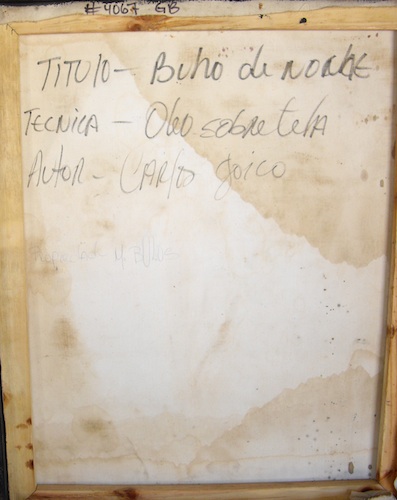 # 4067 GB
TITULO - Buho de NORUE
TECNICA - Oleo sobre tela
AUTOR - CARLOS Goico